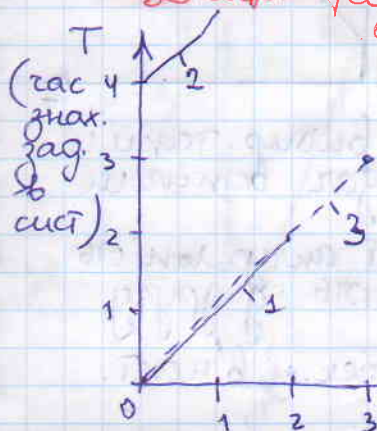 T
(час 4
знах.
зад. 3
в
сист) 2
1
0 1 2 3
2
3
1